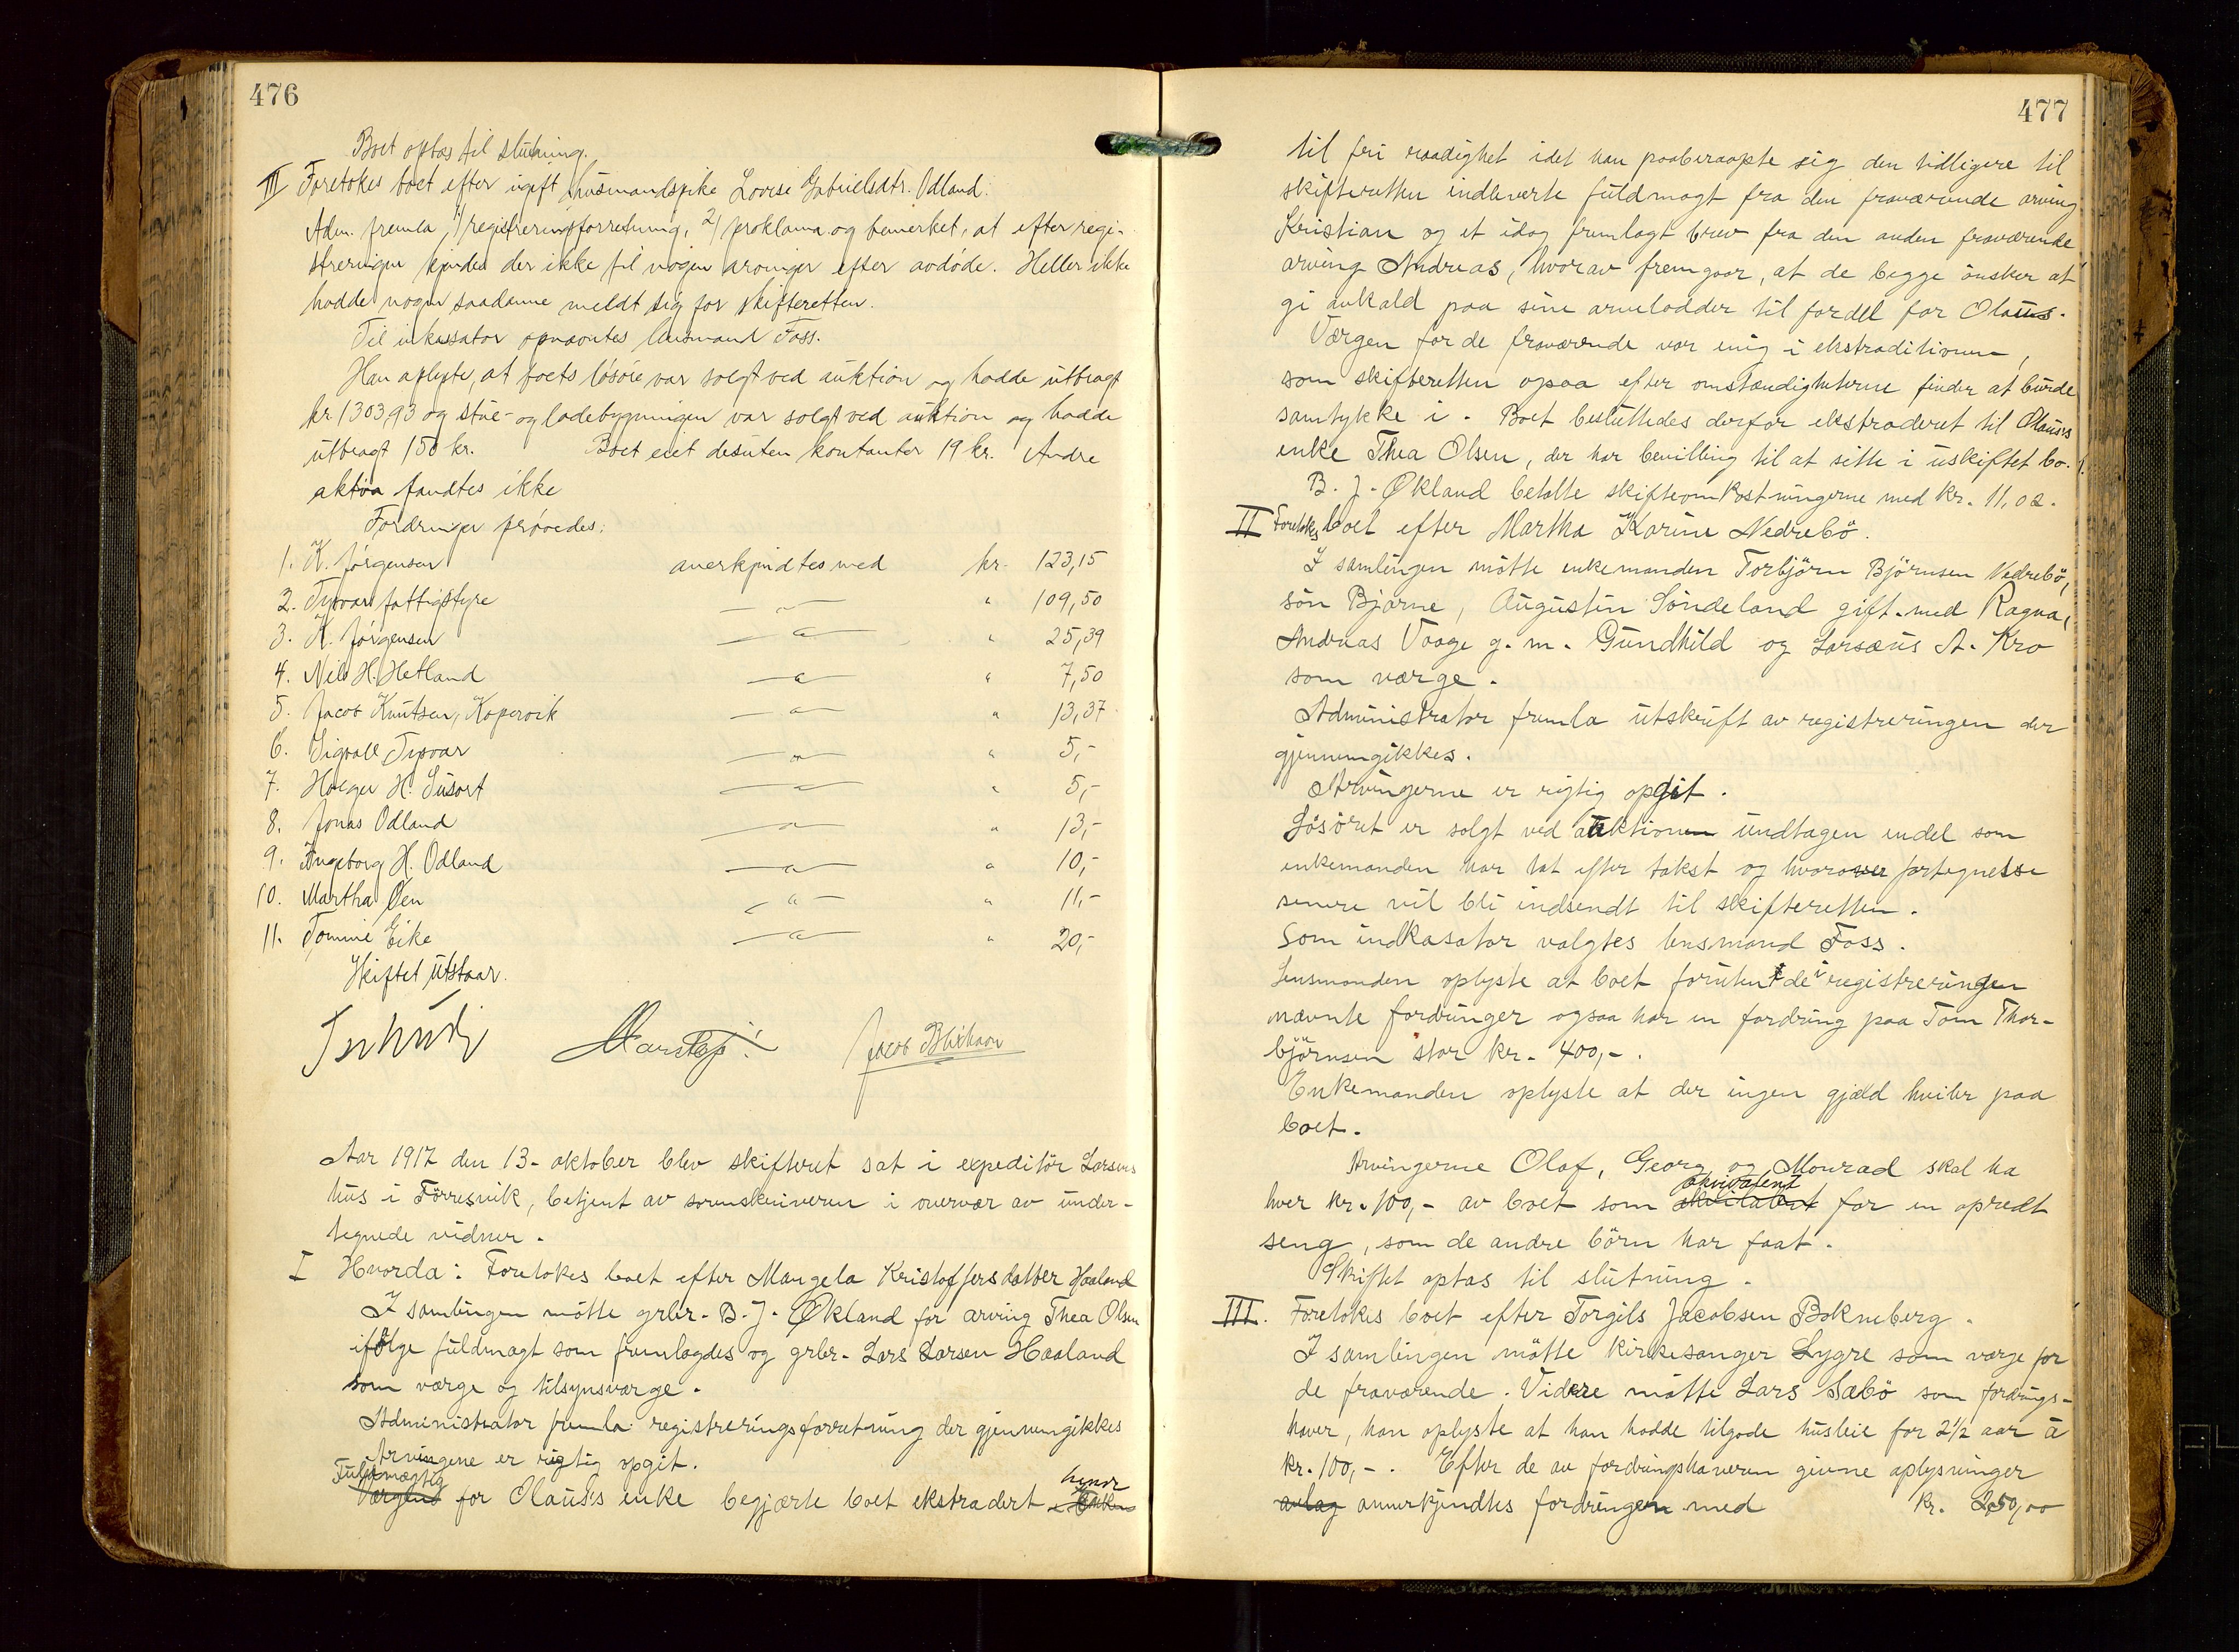 476
Boet optas til slutning.
III Foretokes boet efter ugift husmandspike Lovise Gabrielsdtr. Odland.
Adm. fremla 1/ registreringsforretning, 2/ proklama og bemerket, at efter regi-
streringen kjendes der ikke til nogen arvinger efter avdöde. Heller ikke
hadde nogen saadanne meldt sig for skifteretten.
Til inkassator opnævntes lensmand Foss.
Han oplyste, at boets lösöre var solgt ved auktion og hadde utbragt
kr 1303,93 og stue- og ladebygningen var solgt ved auktion og hadde
utbragt 150 kr. Boet eiet desuten kontanter 19 kr. Andre
aktiva fandtes ikke
Fordringer prövedes:
1. K. Jørgensen anerkjendtes med kr. 123,15
2. Tysvær fattigstyre — " — " 109,50
3. K. Jørgensen — " — " 25,39
4. Nils H. Hetland — " — " 7,50
5. Jacob Knutsen, Kopervik — " — " 13,37
6. Sigvall Tysvær — " — " 5,-
7. Holger H. Susort — " — " 5,-
8. Jonas Odland — " — " 13,-
9. Ingeborg H. Odland — " — " 10,-
10. Martha Øen — " — " 11,-
11. Tomine Eike — " — " 20,-
Skiftet utstaar.
Jacob
Aar 1917 den 13. oktober blev skifteret sat i expeditör Larsens
hus i Förresvik, betjent av sorenskriveren i overvær av under-
tegnede vidner.
I Hvorda: Foretokes boet efter Mangela Kristoffersdatter Haaland
I samlingen mötte grbr. B. J. Økland for arving Thea Olsen
ifölge fuldmagt som fremlagdes og grbr. Lars Larsen Haaland
som værge og tilsynsværge.
Administrator fremla registreringsforretning der gjennemgikkes
Arvingene er rigtig opgit.
Fuldmægtig
Værgene for Olaus's enke begjærte boet ekstradert henr
477
til fri raadighet idet han paaberaapte sig den tidligere til
skifteretten indleverte fuldmagt fra den fraværende arving
Kristian og et idag fremlagt brev fra den anden fraværende
arving Andreas, hvorav fremgaar, at de begge önsker at
gi avkald paa sine arvelodder til fordel for Olaus.
Værgen for de fraværende var enig i ekstraditionen,
som skifteretten ogsaa efter omstændigheterne finder at burde
samtykke i. Boet besluttedes derfor ekstraderet til Olaus's
enke Thea Olsen, der har bevilling til at sitte i uskiftet bo.
B. J. Økland betalte skifteomkostningerne med kr. 11,02.
II Foretokes boet efter Martha Karine Nedrebö.
I samlingen mötte enkemanden Torbjörn Björnsen Nedrebö,
sön Bjarne, Augustin Söndeland gift med Ragna,
Andreas Vaage g. m. Gundhild og Larsæus A. Kro
som værge.
Administrator fremla utskrift av registreringen der
gjennemgikkes.
Arvingerne er rigtig opgit.
Lösöret er solgt ved auktionen undtagen endel som
enkemanden har tat efter takst og hvorover fortegnelse
senere vil bli indsendt til skifteretten.
Som indkasator valgtes lensmand Foss.
Lensmanden oplyste at boet foruten de i registreringen
nævnte fordringer ogsaa har en fordring paa Tom Thor-
björnsen stor kr. 400,-.
Enkemanden oplyste at der ingen gjæld hviler paa
boet.
Arvingerne Olaf, Georg og Monrad skal ha
ækvivalent
hver kr. 100,- av boet som for en opredt
seng, som de andre börn har faat.
Skiftet optas til slutning.
III. Foretokes boet efter Torgils Jacobsen Bokneberg.
I samlingen mötte kirkesanger Lygre som værge for
de fraværende. Videre mötte Lars Sæbö som fordrings-
haver, han oplyste at han hadde tilgode husleie for 2 1/2 aar à
kr. 100,-. Efter de av fordringshaveren givne oplysninger
avlag annerkjendtes fordringen med kr. 250,00